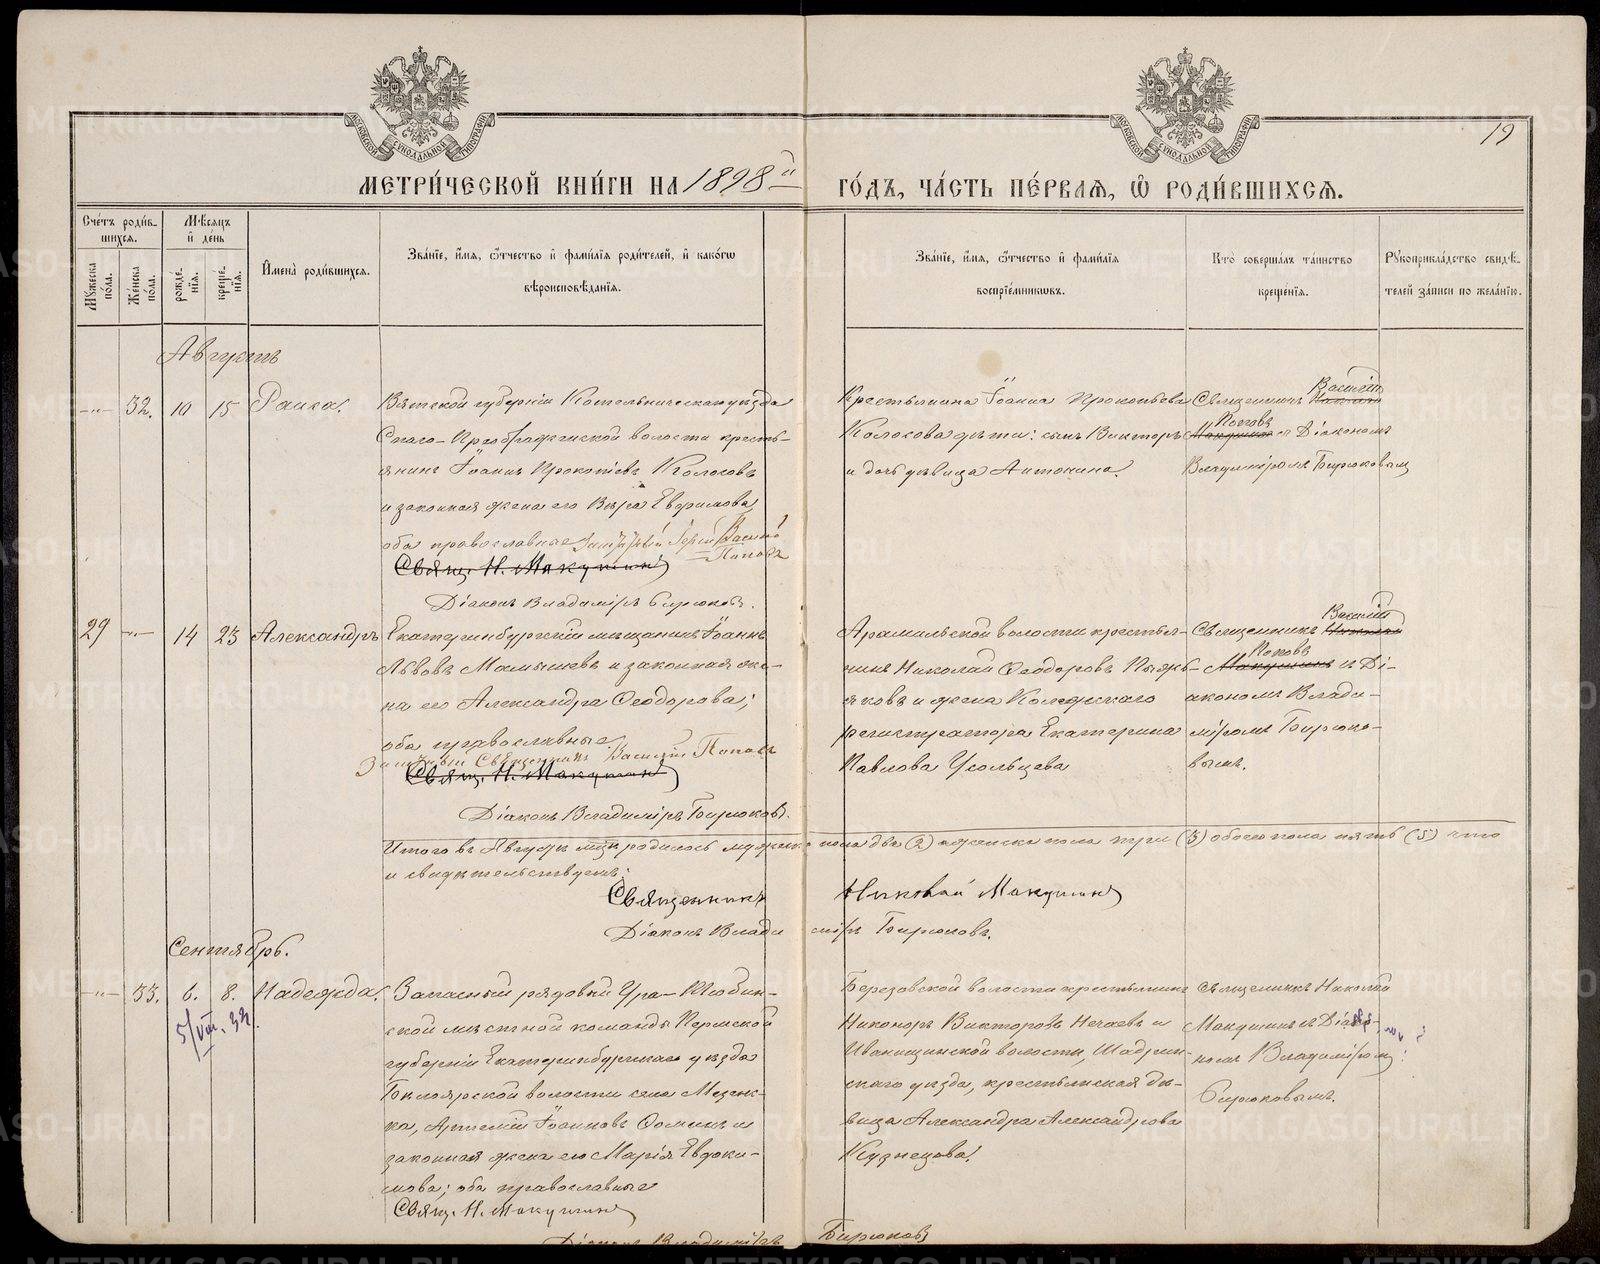 19
МЕТРИ́ЧЕСКОЙ КНИ́ГИ НА 1898й
ГО́ДЪ, ЧА́СТЬ ПЕ́РВАѦ, Ѿ РОДИ́ВШИХСѦ.
Сче́тъ роди́в-
шихсѧ.
Мѣ́сяцъ
и҆ де́нь
И҆мена̀ роди́вшихсѧ.
Зва́нїе, и҆́мѧ, ѻ҆́тчество и҆ фами́лїѧ роди́телей, и҆ како́гѡ
вѣроисповѣ́данїѧ.
Зва́нїе, и҆́мѧ, ѻ҆́тчество и҆ фами́лїѧ
воспрїе́мникѡвъ.
Кто̀ соверша́лъ та́инство
креще́нїѧ.
Рꙋкоприкла́дство свидѣ́-
телей за́писи по жела́нїю.
Мꙋ́жеска
по́ла.
Же́нска
по́ла.
рожде́-
нїѧ.
креще́-
нїѧ.
Августъ
-"- 32. 10 15 Раиса.
Вятской губерніи Котельническаго уѣзда
Спасо-Преображенской волости кресть-
янинъ Іоаннъ Прокопіевъ Колосовъ
и законная жена его Вѣра Евфимова,
оба православные
Василій
Поповъ
Свящ. Н. Макушинъ
Діаконъ Владиміръ Бирюковъ.
Крестьянина Іоанна Прокопьева
Колосова дѣти: сынъ Викторъ
и дочь дѣвица Антонина.
Василій
Священникъ Николай
Поповъ
Макушинъ съ Діакономъ
Владиміромъ Бирюковымъ
29 -"- 14 23 Александръ
Екатеринбургскій мѣщанинъ Іоаннъ
Львовъ Мамышевъ и законная же-
на его Александра Ѳеодорова;
оба православные
Священникъ Василій Поповъ
Свящ. Н. Макушинъ
Діаконъ Владиміръ Бирюковъ.
Арамильской волости крестья-
нинъ Николай Ѳеодоровъ
и жена Коллежскаго
регистратора Екатерина
Павлова Усольцева
Василій
Священникъ Николай
Поповъ
Макушинъ съ Ді-
акономъ Влади-
міромъ Бирюко-
вымъ.
Итого въ Августѣ мцѣ родилось мужска пола два (2) женска пола три (3) обоего пола пять (5) что
и свидѣтельствуемъ:
Священникъ Николай Макушинъ
Діаконъ Владиміръ Бирюковъ.
Сентябрь.
-"- 33. 6. 8. Надежда.
5/VIII.33.
Запасный рядовый Ура-Тюбин-
ской мѣстной команды Пермской
губерніи Екатеринбургскаго уѣзда
Бѣлоярской волости села Мезенс-
ка, Артемій Іоанновъ Ѳоминъ и
законная жена его Марія Евдоки-
мова; оба православные
Свящ. Н. Макушинъ
Діаконъ Владиміръ Бирюковъ
Березовской волости крестьянинъ
Никоноръ Викторовъ Нечаевъ и
Иванищинской волости, Шадрин-
скаго уѣзда, крестьянская дѣ-
вица Александра Александрова
Кузнецова.
Священникъ Николай
Макушинъ съ Діа-
кономъ Владиміромъ
Бирюковымъ.
METRIKI.GASO-URAL.RU